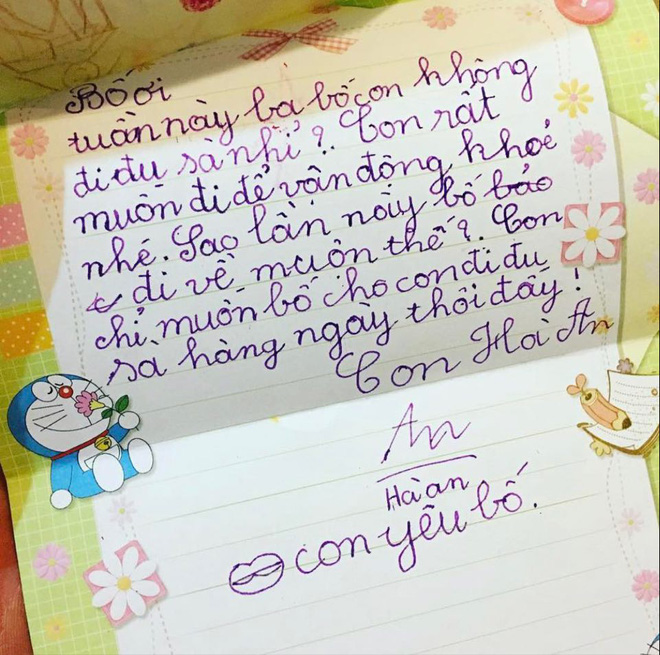 Bố ơi
tuần này ba bố con không
đi đu sà nhỉ? Con rất
muốn đi để vận động khoẻ
nhé. Sao lần này bố bảo
đi về muôn thế?. Con
chỉ muốn bố cho con đi đu
sà hàng ngày thôi đấy!
Con Hà An
An
Hà an
con yêu bố.